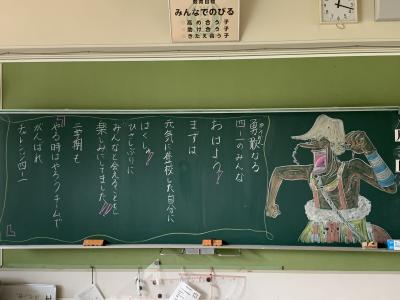 教育目標
みんなでのびる
高め合う子
助け合う子
きたえ合う子
勇敢なる
四ー一のみんな
おはよう!
まずは
元気に登校した自分に
はくしゅ!!
ひさしぶりに
みんなと会えることを
楽しみにしてました!!
二学期も
やる時はやろうチームで
がんばれ
チャレンジ四ー一